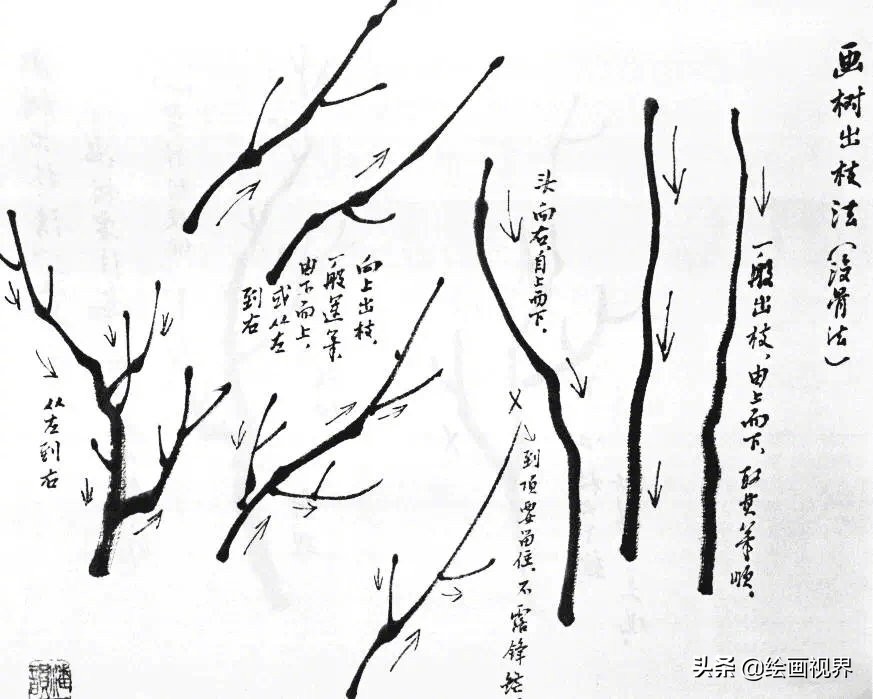 画树出枝法（没骨法）
一般出枝、由上而下、取其笔顺、
头向右、自上而下、
向上出枝、
一般运笔、
由下而上、
或从左
到右
×
到顶要留住、不露锋
从左到右
×
头条 @绘画视界